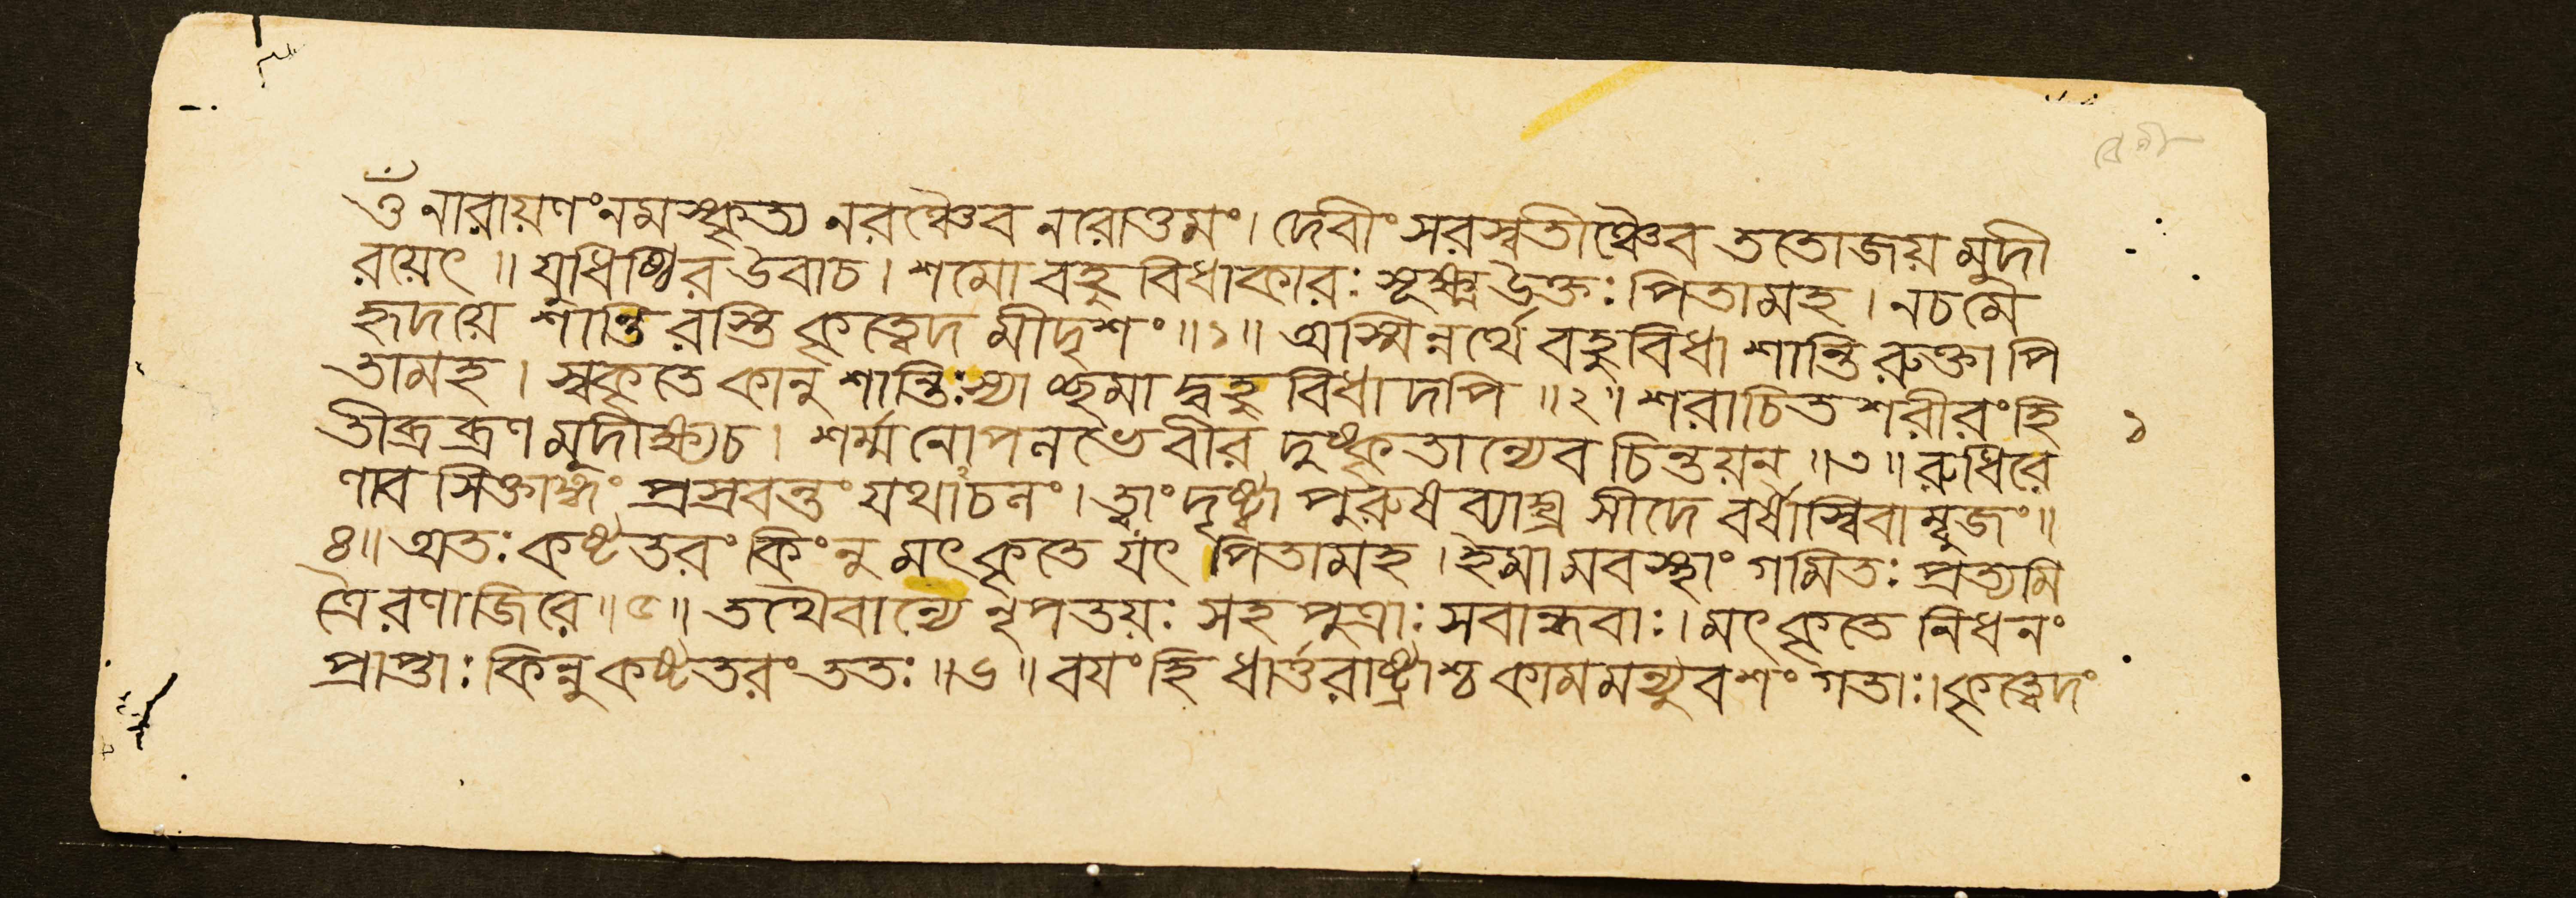 ওঁ নারায়ণং নমস্কৃত্য নরঞ্চৈব নরোত্তমং। দেবীং সরস্বতীঞ্চৈব ততোজয় মুদী
রয়েৎ ॥ যুধিষ্ঠির উবাচ। শমো বহু বিধাকারঃ সূক্ষ্ম উক্তঃ পিতামহ। নচমে
হৃদয়ে শান্তি রস্তি কৃত্বেদ মীদৃশং ॥১॥ অস্মিন্নর্থে বহুবিধা শান্তি রুক্তা পি
তামহ। স্বকৃতে কানু শান্তিঃ স্যা চ্ছমা দ্বহু বিধা দপি ॥২॥ শরাচিত শরীরং হি
তীব্র ব্রণ মুদীক্ষ্য চ। শর্ম্ম নোপলভে বীর দুষ্কৃতান্যেব চিন্তয়ন্ ॥৩॥ রুধিরে
ণাব সিক্তাঙ্গং প্রস্রবন্তং যথাচলং। ত্বাং দৃষ্ট্বা পুরুষ ব্যাঘ্র সীদে বর্ষাস্বিবাম্বুজং ॥
৪॥ অতঃ কষ্টতরং কিং নু মৎকৃতে যৎ পিতামহ। ইমামবস্থাং গমিতঃ প্রত্যমি
ত্রৈ রণাজিরে ॥৫॥ তথৈবান্যে নৃপতয়ঃ সহ পুত্রাঃ সবান্ধবাঃ। মৎকৃতে নিধনং
প্রাপ্তাঃ কিন্নু কষ্টতরং ততঃ ॥৬॥ বয়ং হি ধার্ত্তরাষ্ট্রাশ্চ কামমন্যুবশং গতাঃ। কৃত্বেদং
১